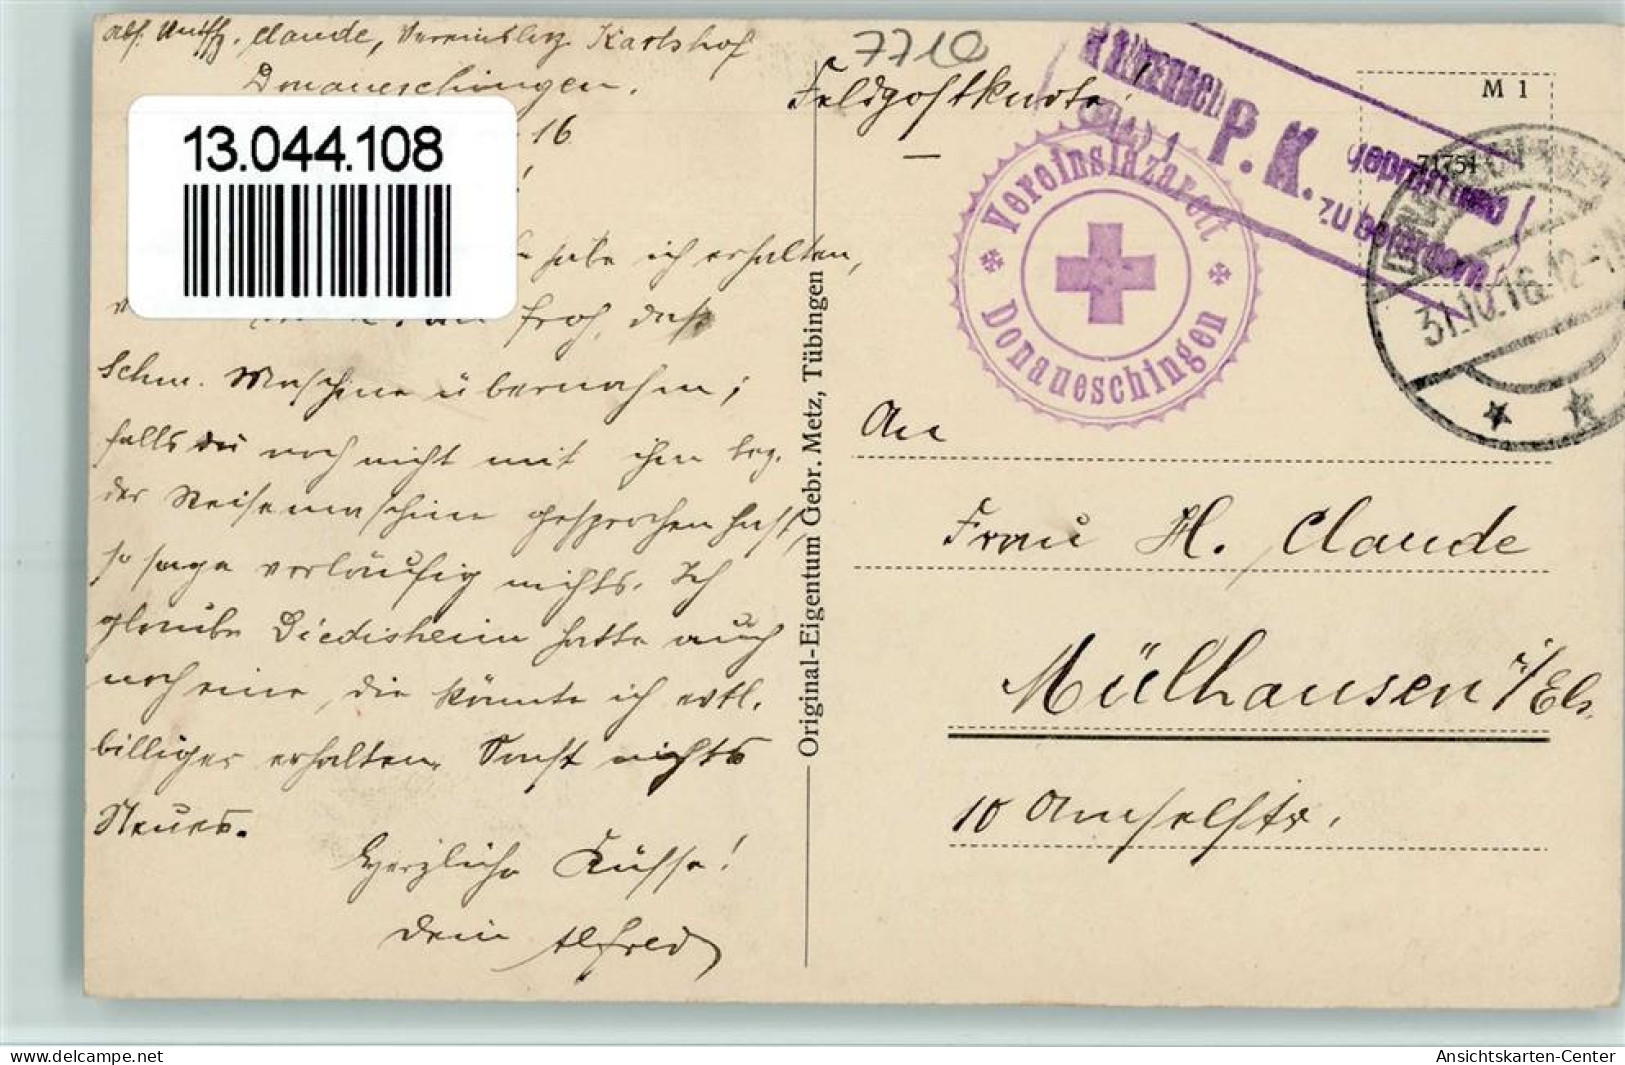 Abs. Untffz. Claude, Vereinslaz. Karlshof
Donaueschingen.
16
13.044.108
habe ich erhalten,
froh, daß
Schm. Maschine übernahm;
falls du noch nicht mit ihm bez.
der Reisemaschine gesprochen hast,
so sage vorläufig nichts. Ich
glaube Diedisheim hatte auch
noch eine, die könnte ich evtl.
billiger erhalten. Sonst nichts
Neues.
Herzliche Küsse!
Dein Alfred
Original-Eigentum Gebr. Metz, Tübingen
7710
Feldpostkarte!
M 1
71751
P. K.
geprüft und
zu befördern
Vereinslazarett
Donaueschingen
31.10.16.12-
An
Frau H. Claude
Mülhausen i/Els.
10 Amselstr.
www.delcampe.net
Ansichtskarten-Center